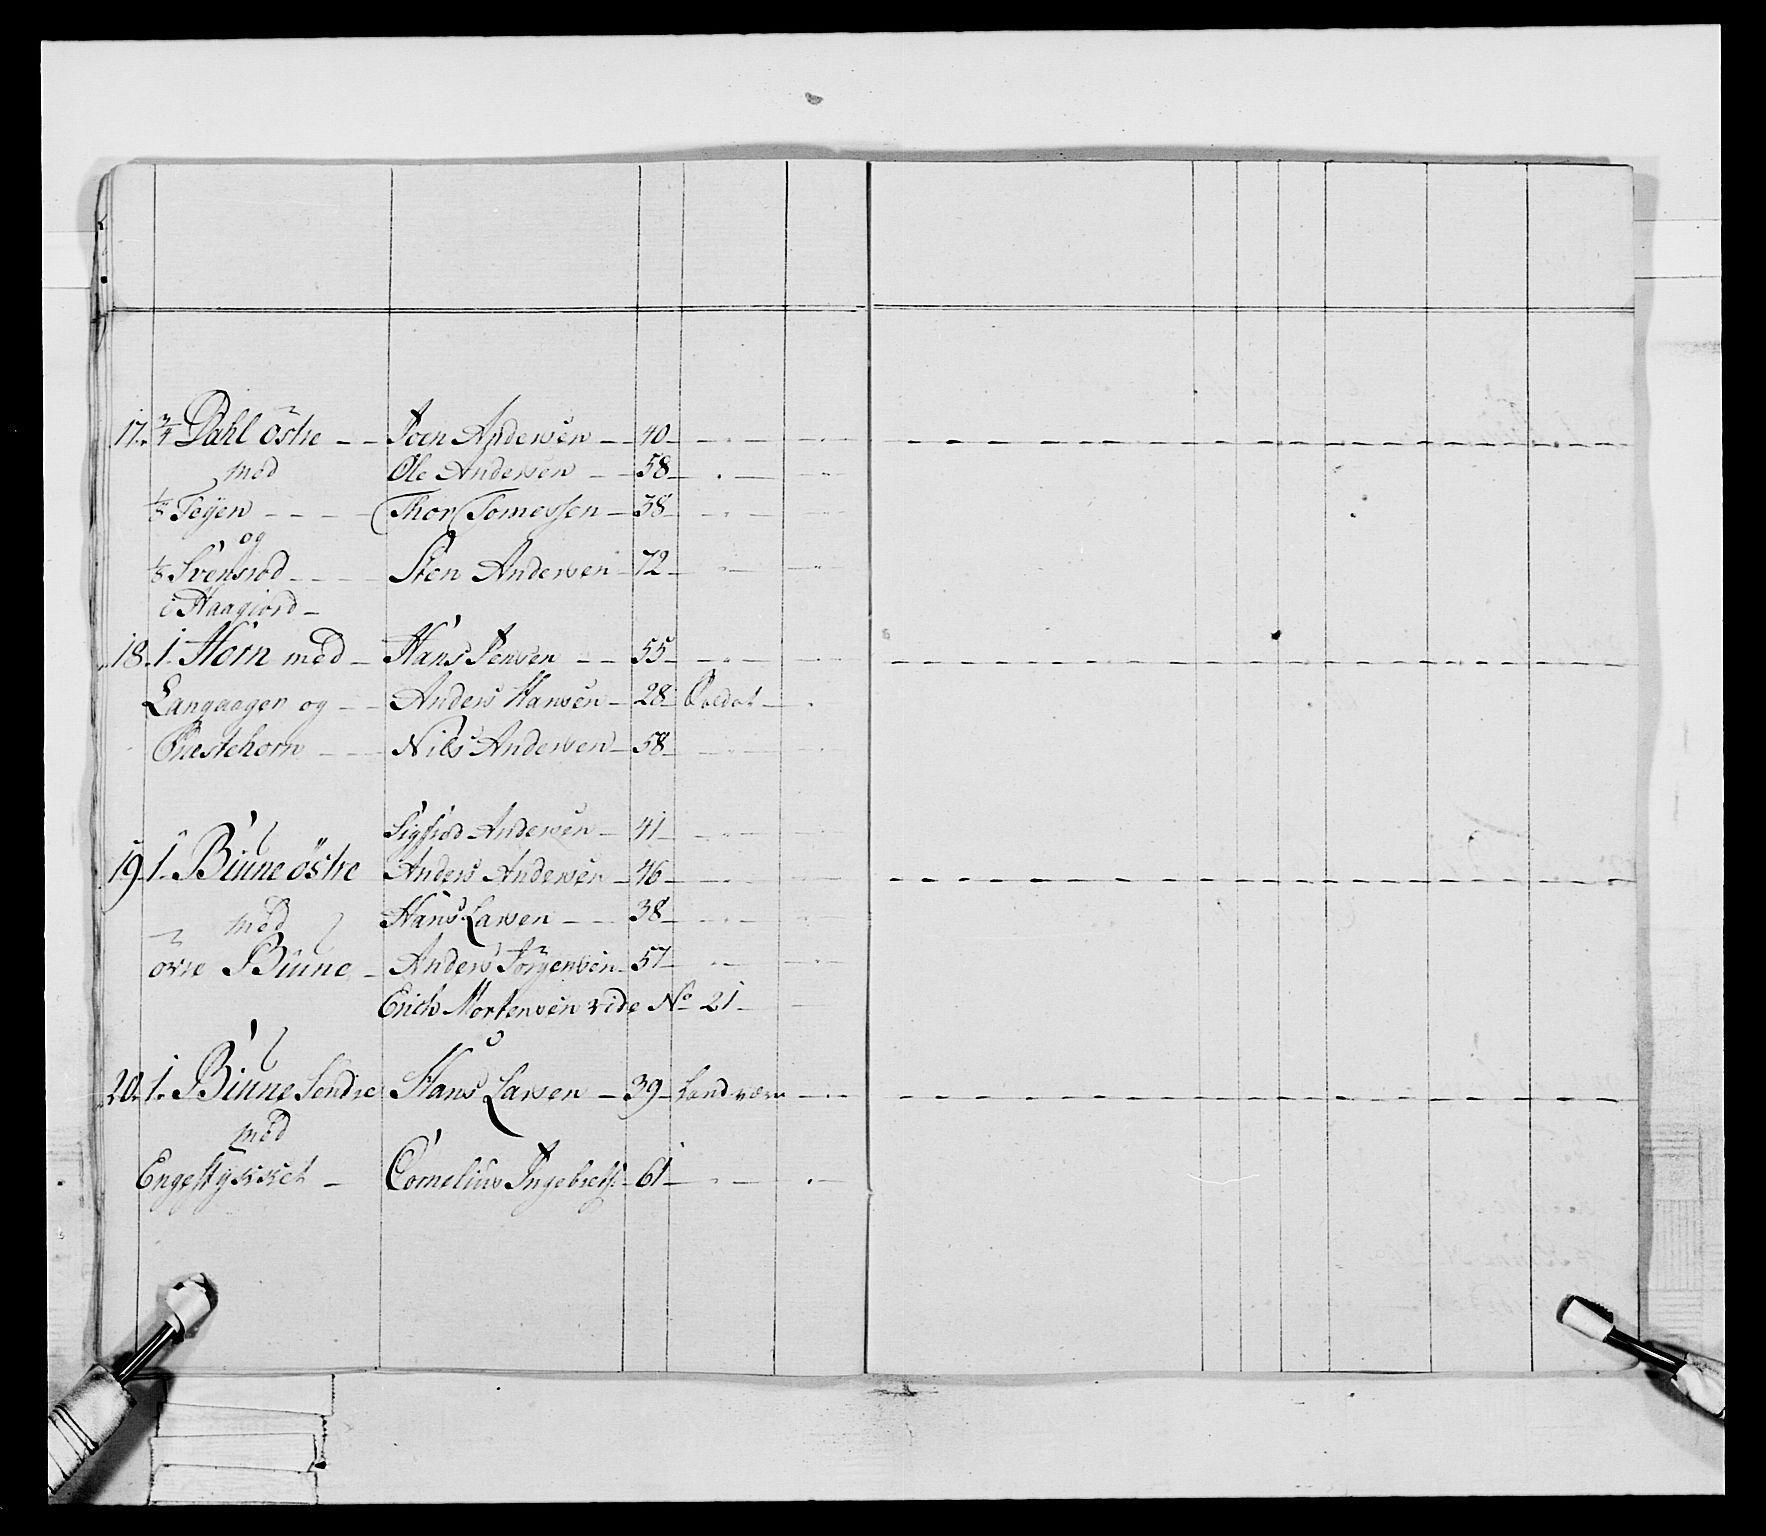 17. 3/4 Dahl östre - - Joen Andersen - 40 -
med Ole Andersen - 58 -
1/8 Teÿen - - - Thor Tomessen - 38 -
og
1/8 Svensrød - - - Sten Andersen - 72 -
i Haagiord -
18. 1. Horn med - Hans Jensen - - 55 -
Langaager og - - Anders Hansen - 28 Soldat -
Præstehorn - - Niels Andersen - 58 -
Sigfrød Andersen - 41 -
19. 1. Biune östre Anders Andersen - 46 -
med Hans Larsen - - 38 -
övre Biune - Anders Jörgensen - 57 -
Erich Mortensen vide No 21 -
20. 1. Biune Söndre Hans Larsen - 39 - Landværn -
med
Engestÿkket - Cornelius Ingebrets: - 61 -